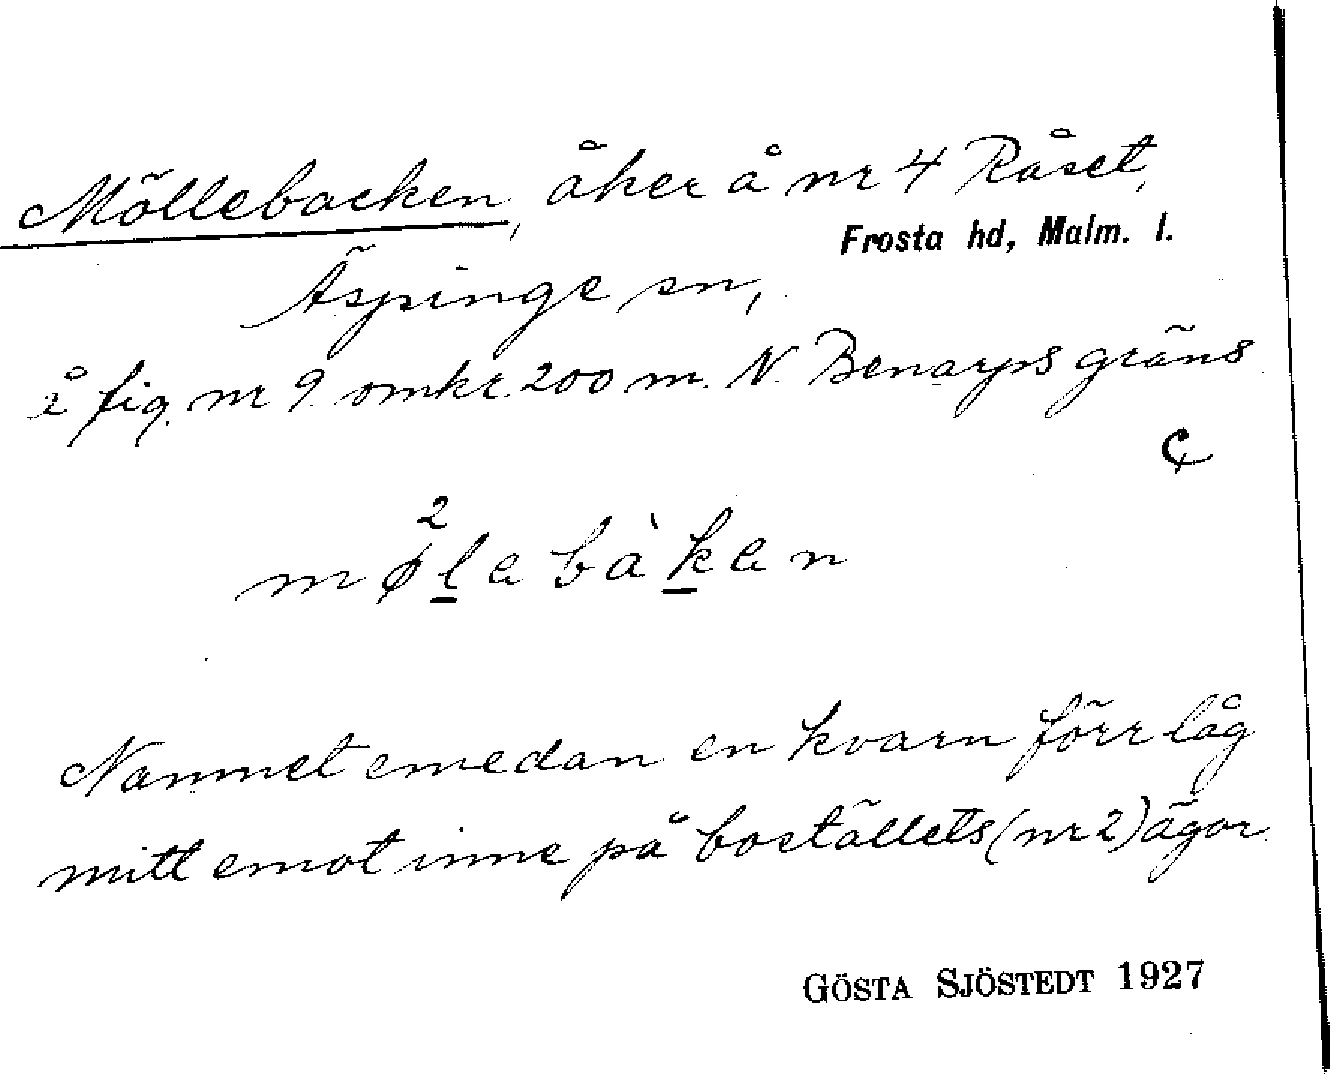 Möllebacken, åker å nr 4 Råset,
Frosta hd, Malm. l.
Äspinge sn,
å fig. nr 9 omkr. 200 m. N. Benarps gräns
2
møla bàkan
Namnet emedan en kvarn förr låg
mitt emot inne på boställets (nr 2) ägor.
GÖSTA SJÖSTEDT 1927